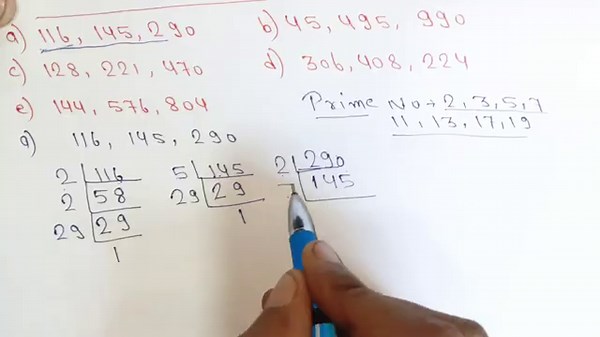 a) 116, 145, 290
b) 45, 495, 990
c) 128, 221, 470
d) 306, 408, 224
e) 144, 576, 804
Prime No → 2, 3, 5, 7
11, 13, 17, 19
a) 116, 145, 290
2 116
2 58
29 29
1
5 145
29 29
1
2 290
145